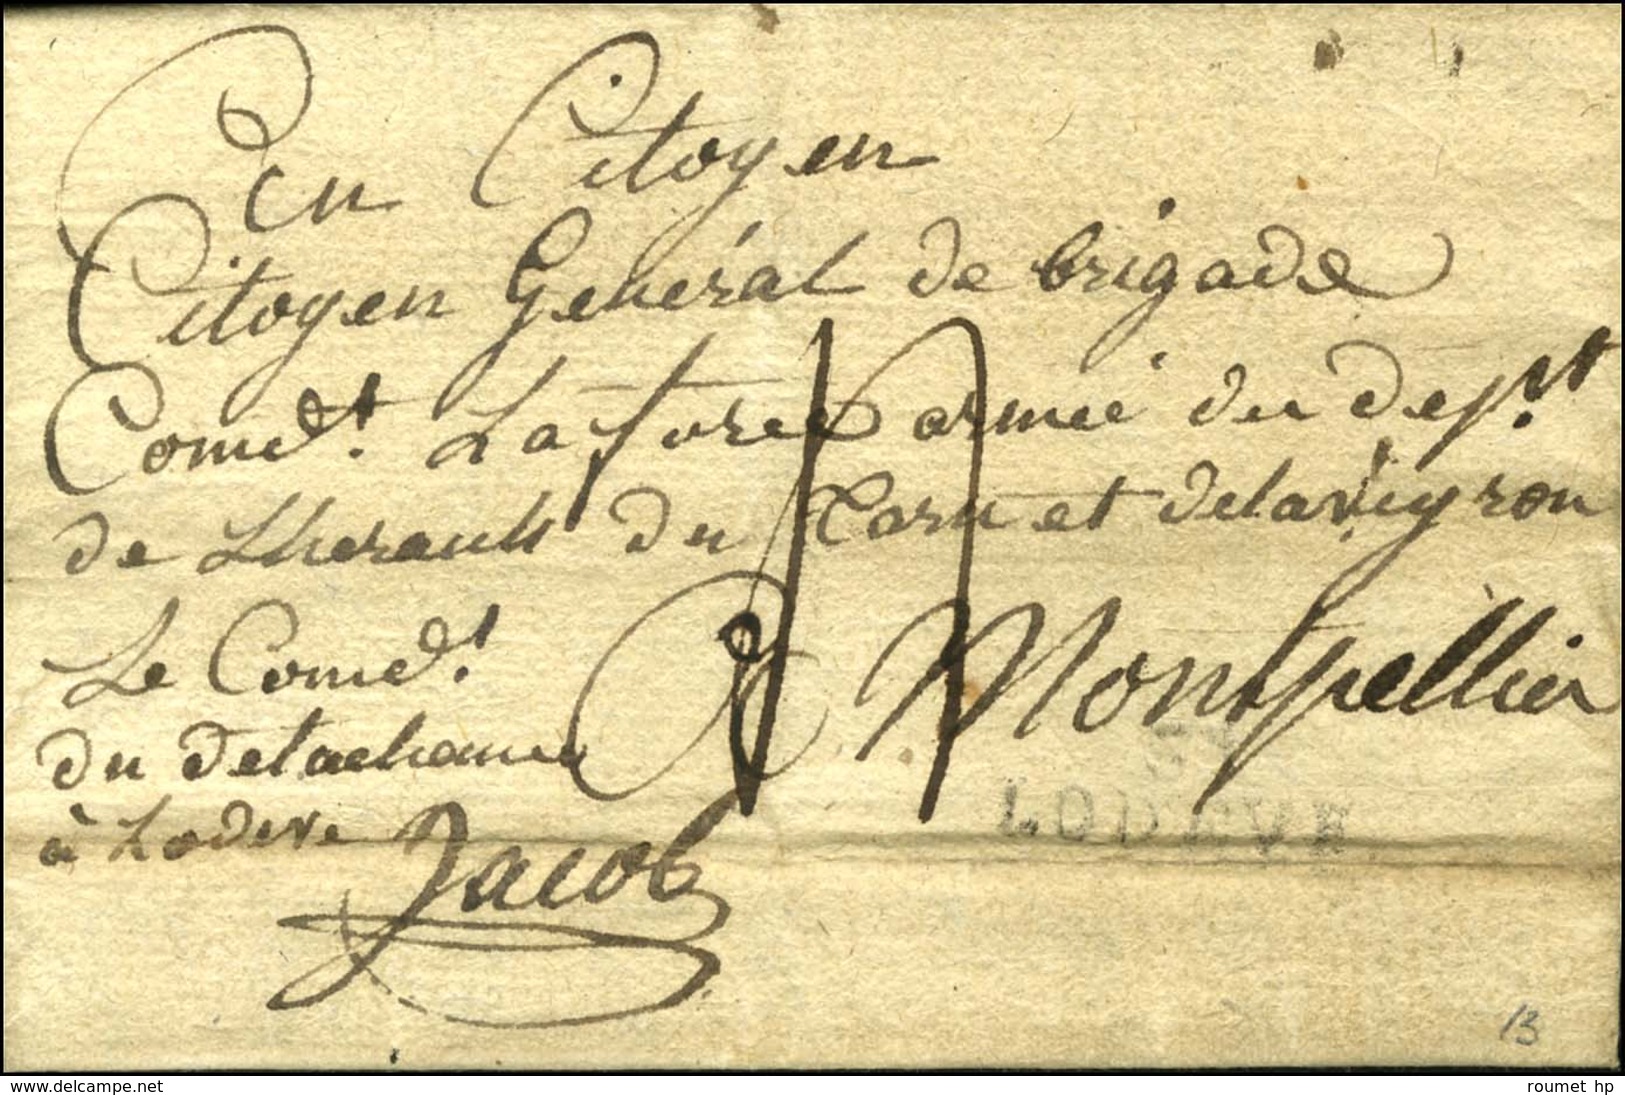 Citoyen
Citoyen Général de brigade
Comdt. La force armée du Dept.
de Lherault du Tarn et delaveyron
Le Comdt.
du detachement
à Lodeve
a Montpellier
Jacob
LODEVE
13
www.delcampe.net
roumet hp